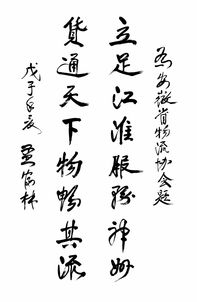 为安徽省物流协会题
立足江淮服务神州
货通天下物畅其流
戊子年夏